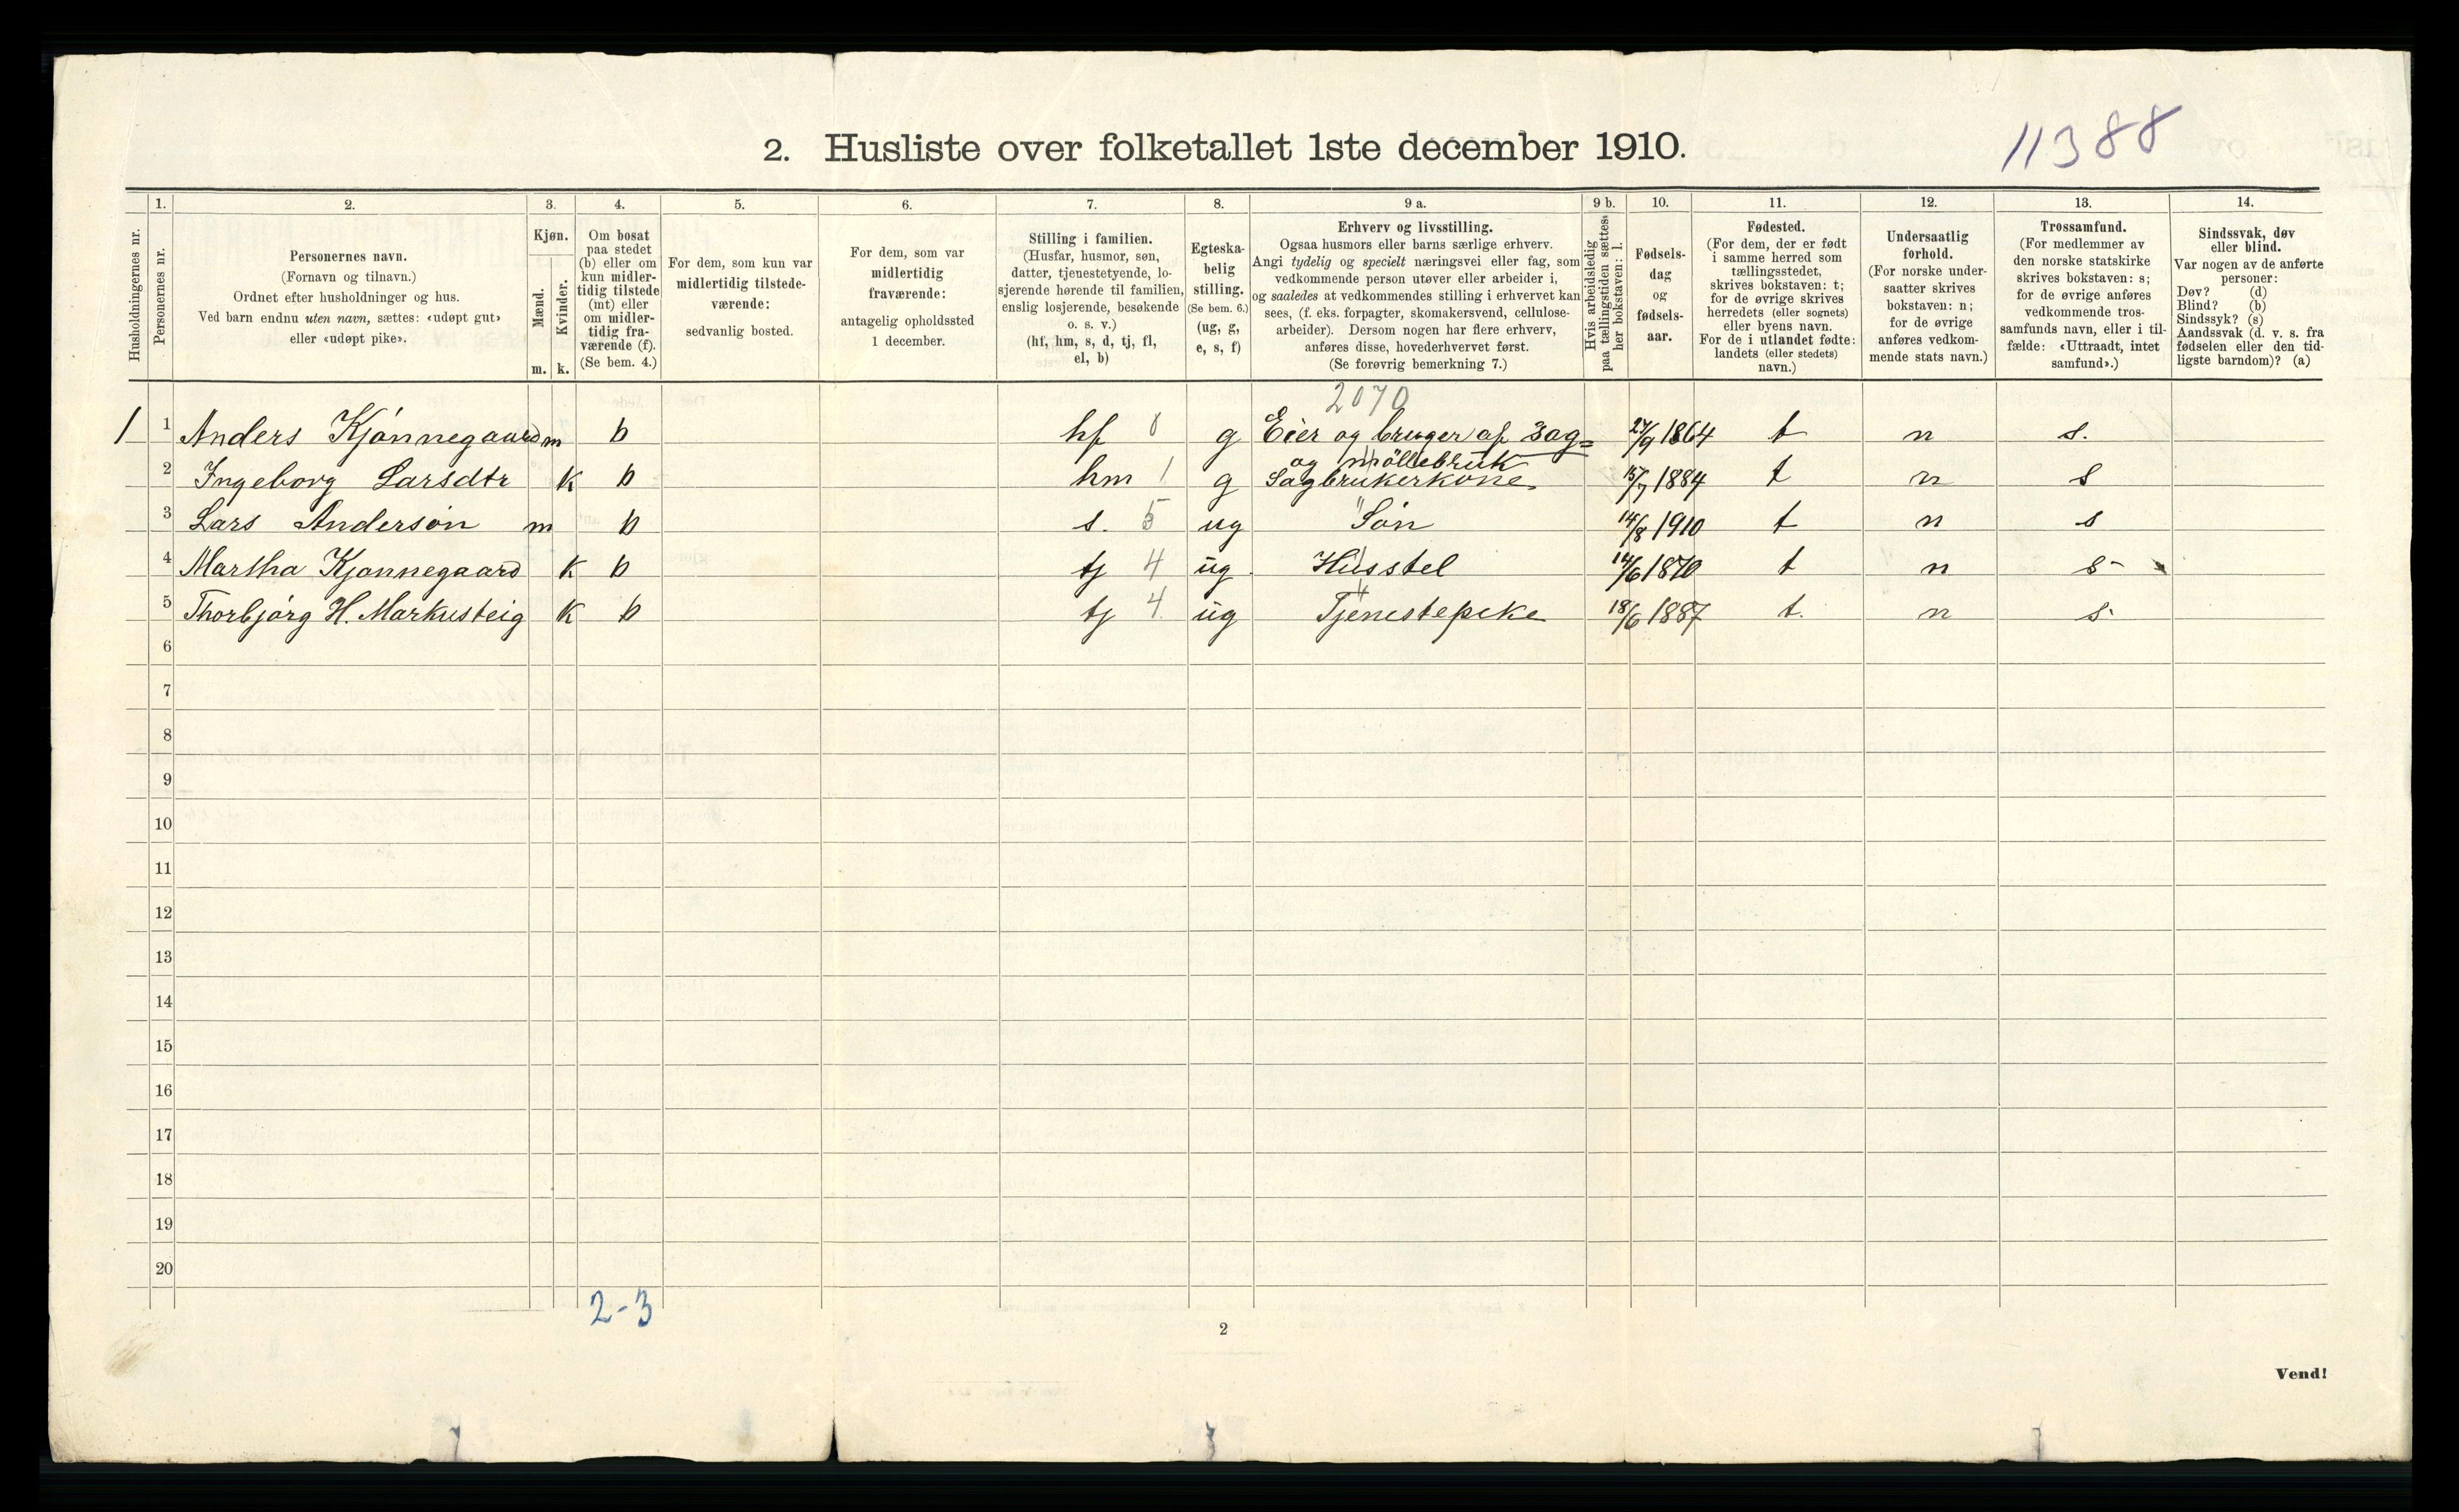 11388
2. Husliste over folketallet 1ste december 1910.
Husholdningernes nr.
1.
Personernes nr.
2.
Personernes navn.
(Fornavn og tilnavn.)
Ordnet efter husholdninger og hus.
Ved barn endnu uten navn, sættes: «udøpt gut»
eller «udøpt pike».
3.
Kjøn.
Mænd.
Kvinder.
m. k.
4.
Om bosat
paa stedet
(b) eller om
kun midler-
tidig tilstede
(mt) eller
om midler-
tidig fra-
værende (f).
(Se bem. 4.)
5.
For dem, som kun var
midlertidig tilstede-
værende:
sedvanlig bosted.
6.
For dem, som var
midlertidig
fraværende:
antagelig opholdssted
1 december.
7.
Stilling i familien.
(Husfar, husmor, søn,
datter, tjenestetyende, lo-
sjerende hørende til familien,
enslig losjerende, besøkende
o. s. v.)
(hf, hm, s, d, tj, fl,
el, b)
8.
Egteska-
belig
stilling.
(Se bem. 6.)
(ug, g,
e, s, f)
9 a.
Erhverv og livsstilling.
Ogsaa husmors eller barns særlige erhverv.
Angi tydelig og specielt næringsvei eller fag, som
vedkommende person utøver eller arbeider i,
og saaledes at vedkommendes stilling i erhvervet kan
sees, (f. eks. forpagter, skomakersvend, cellulose-
arbeider). Dersom nogen har flere erhverv,
anføres disse, hovederhvervet først.
(Se forøvrig bemerkning 7.)
9 b.
Hvis arbeidsledig
paa tællingstiden sættes
her bokstaven: l.
10.
Fødsels-
dag
og
fødsels-
aar.
11.
Fødested.
(For dem, der er født
i samme herred som
tællingsstedet,
skrives bokstaven: t;
for de øvrige skrives
herredets (eller sognets)
eller byens navn.
For de i utlandet fødte:
landets (eller stedets)
navn.)
12.
Undersaatlig
forhold.
(For norske under-
saatter skrives
bokstaven: n;
for de øvrige
anføres vedkom-
mende stats navn.)
13.
Trossamfund.
(For medlemmer av
den norske statskirke
skrives bokstaven: s;
for de øvrige anføres
vedkommende tros-
samfunds navn, eller i til-
fælde: «Uttraadt, intet
samfund».)
14.
Sindssvak, døv
eller blind.
Var nogen av de anførte
personer:
Døv? (d)
Blind? (b)
Sindssyk? (s)
Aandssvak (d. v. s. fra
fødselen eller den tid-
ligste barndom)? (a)
2070
1 1 Anders Kjønnegaard m b hf 0 g Eier og bruger af Sag= 27/9 1864 t n s.
og møllebruk
2 Ingeborg Larsdtr k b hm 1 g Sagbrukerkone 15/7 1884 t n s
3 Lars Anderson m b s. 5 ug Søn 14/8 1910 t n s
4 Martha Kjønnegaard k b tj 4 ug Husstel 14/6 1870 t n s
5 Thorbjørg H. Markusteig k b tj 4 ug Tjenestepike 18/6 1887 t. n s.
6
7
8
9
10
11
12
13
14
15
16
17
18
19
20
2-3
2
Vend!